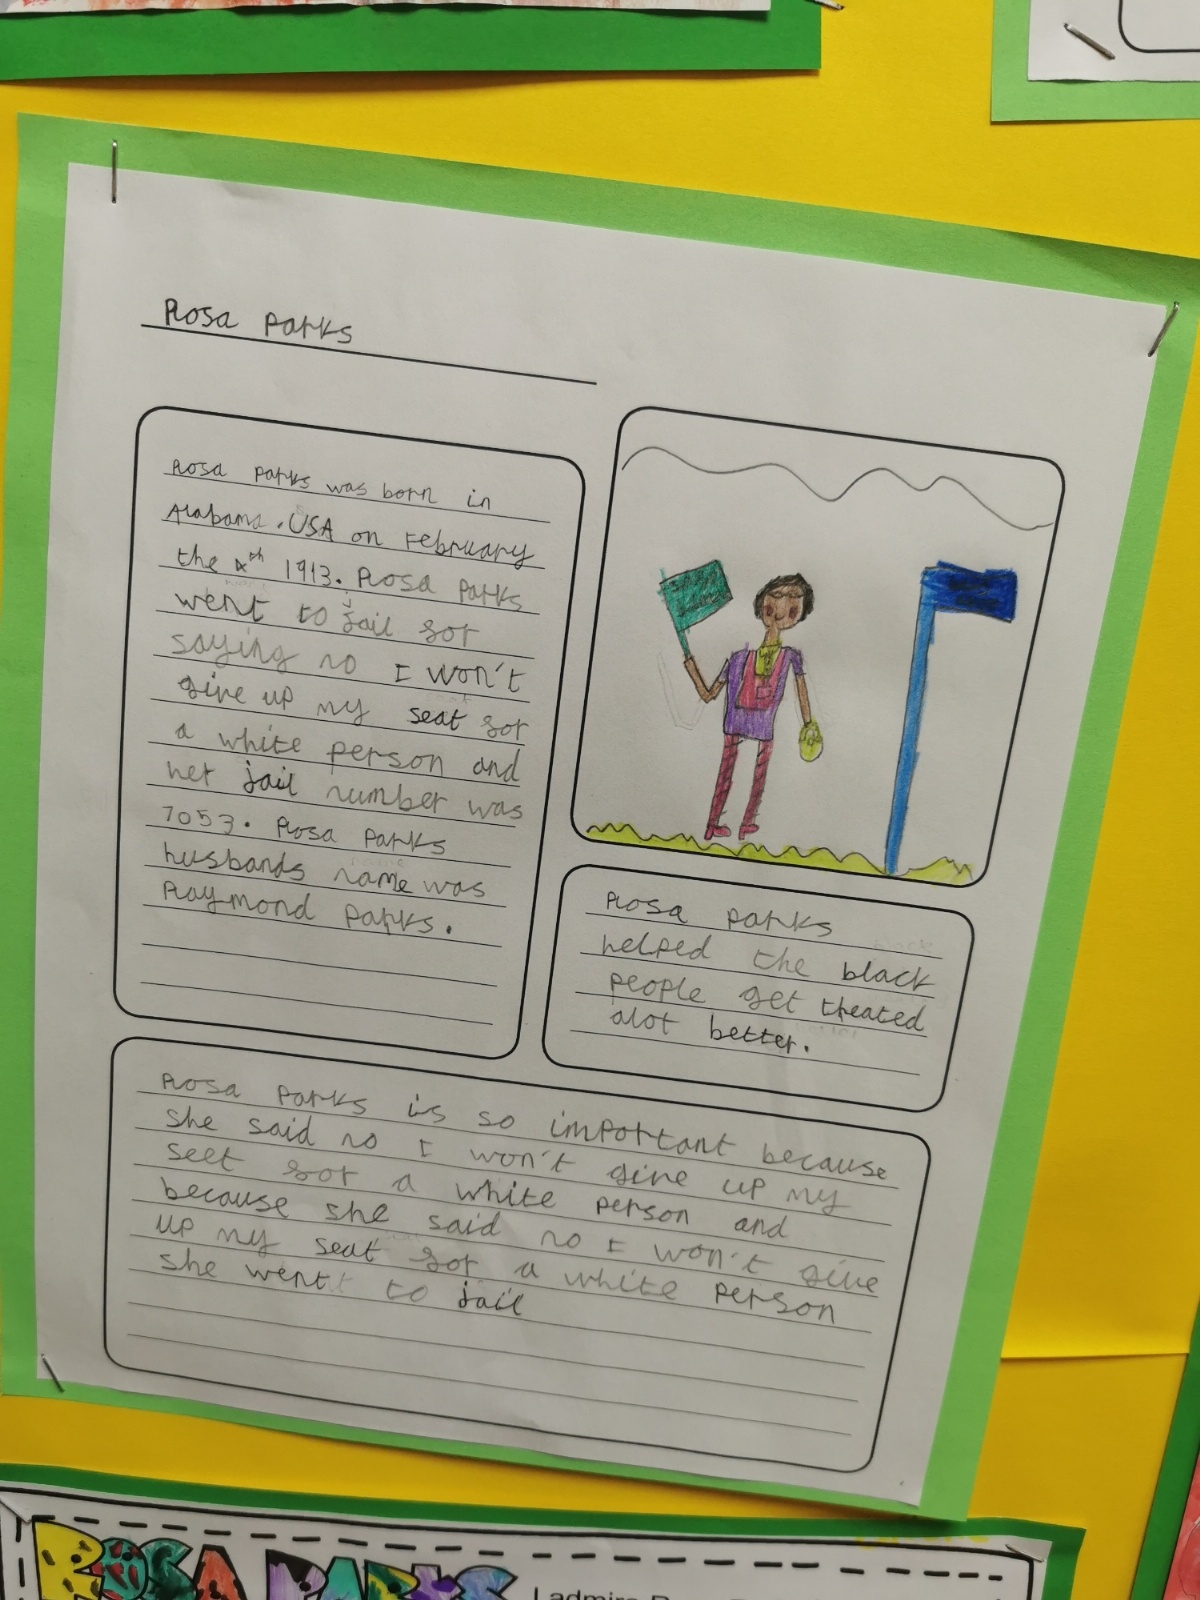 Rosa Parks
Rosa Parks was born in
Alabama. USA on February
the 4th 1913. Rosa Parks
went to jail for
saying no I won't
give up my seat for
a white person and
her jail number was
7053. Rosa Parks
husbands name was
Raymond Parks.
Rosa Parks
helped the black
people get treated
alot better.
Rosa Parks is so important because
she said no I won't give up my
seet for a white person and
because she said no I won't give
up my seat for a white person
she went to jail
ROSA PARKS